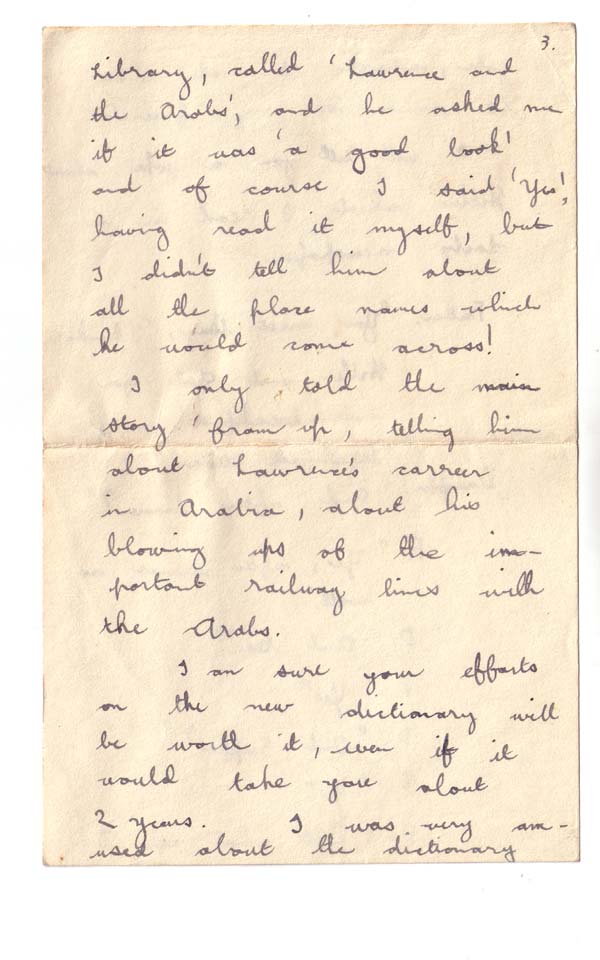 3.
Library, called 'Lawrence and
the Arabs', and he asked me
if it was 'a good book'
and of course I said 'Yes',
having read it myself, but
I didn't tell him about
all the place names which
he would come across!
I only told the main
story 'fram up, telling him
about Lawrence's carreer
in Arabia, about his
blowing ups of the im-
portant railway lines with
the Arabs.
I am sure your efforts
on the new dictionary will
be worth it, even if it
would take you about
2 years. I was very am-
used about the dictionary